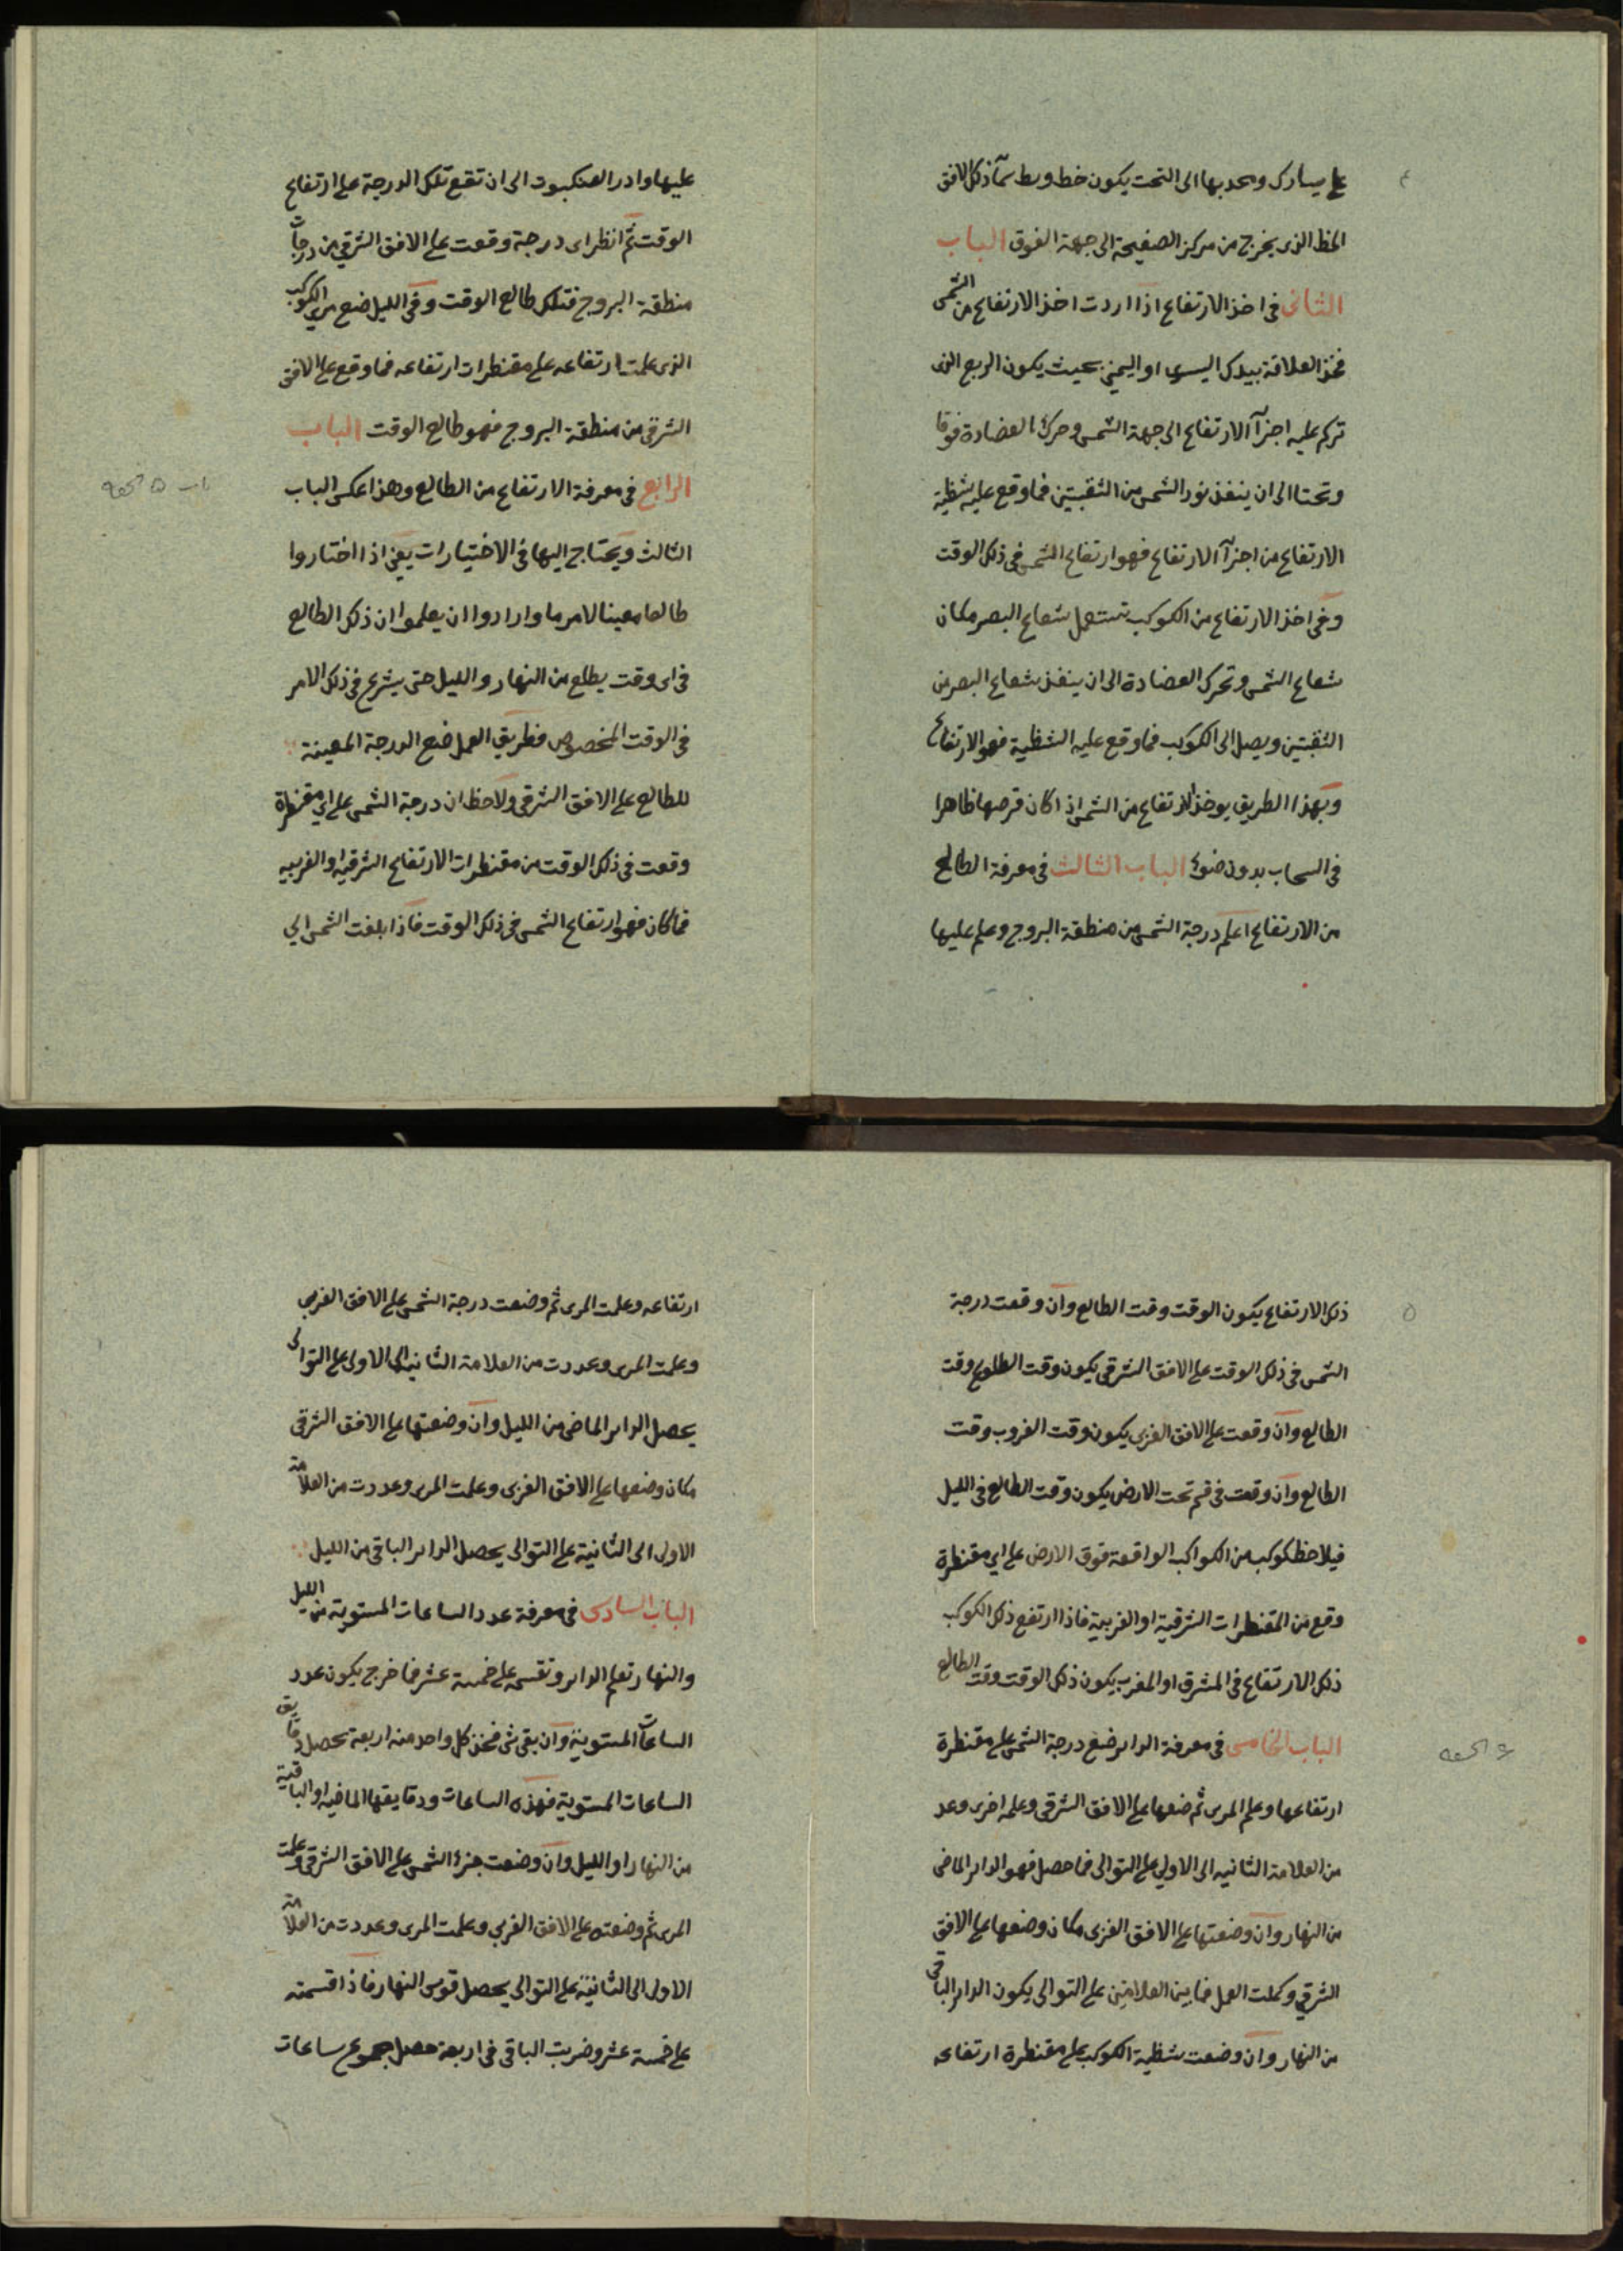 على يسارك ومحدبها الى التحت يكون خط وسط سمآء ذلك الافق
الخط الذى يخرج من مركز الصفيحة الى جهة الفوق الباب
الثانى فى اخذ الارتفاع اذا اردت اخذ الارتفاع من الشمس
فخذ العلاقة بيدك اليسرى او اليمنى بحيث يكون الربع الذى
تركم عليه اجزآ الارتفاع الى جهة الشمس وحرك العضادة فوقا
وتحتا الى ان ينفذ نور الشمس من الثقبتين فما وقع عليه شظية
الارتفاع من اجزآ الارتفاع فهو ارتفاع الشمس فى ذلك الوقت
وفى اخذ الارتفاع من الكوكب تستعمل شعاع البصر مكان
شعاع الشمس وتحرك العضادة الى ان ينفذ شعاع البصر من
الثقبتين ويصل الى الكوكب فما وقع عليه الشظية فهو الارتفاع
وبهذا الطريق يوخذ الارتفاع من الشمس اذا كان قرصها ظاهرا
فى السحاب بدون ضوء الباب الثالث فى معرفة الطالع
من الارتفاع اعلم درجة الشمس من منطقة البروج وعلم عليها
عليها وادر العنكبوت الى ان تقع تلك الدرجة على ارتفاع
الوقت ثم انظر اى درجة وقعت على الافق الشرقي من درجات
منطقة البروج فتلك طالع الوقت وفى الليل ضع مرى الكوكب
الذى علمت ارتفاعه على مقنطرات ارتفاعه فما وقع على الافق
الشرقى من منطقة البروج فهو طالع الوقت الباب
الرابع فى معرفة الارتفاع من الطالع وهذا عكس الباب
باب ٥ تحفه
الثالث ويحتاج اليها فى الاختيارات يعنى اذا اختاروا
طالعا معينا لامر ما وارادوا ان يعلموا ان ذلك الطالع
فى اى وقت يطلع من النهار و الليل حتى يشرع فى ذلك الامر
فى الوقت المخصوص فطريق العمل ضع الدرجة المعينة
للطالع على الافق الشرقى ولاحظ ان درجة الشمس على اى مقنطرة
وقعت فى ذلك الوقت من مقنطرات الارتفاع الشرقيه او الغربيه
فما كان فهو ارتفاع الشمس فى ذلك الوقت فاذا بلغت الشمس الي
٥
ذلك الارتفاع يكون الوقت وقت الطالع وان وقعت درجة
الشمس فى ذلك الوقت على الافق الشرقى يكون وقت الطلوع وقت
الطالع وان وقعت على الافق الغربى يكون وقت الغروب وقت
الطالع وان وقعت فى قسم تحت الارض يكون وقت الطالع فى الليل
فيلاحظ كوكب من الكواكب الواقعة فوق الارض على اى مقنطرة
وقع من المقنطرات الشرقية او الغربية فاذا ارتفع ذلك الكوكب
ذلك الارتفاع فى المشرق او المغرب يكون ذلك الوقت وقت الطالع
الباب الخامس فى معرفة الداير ضع درجة الشمس على مقنطرة
ارتفاعها وعلم المرى ثم ضعها على الافق الشرقى وعلمه اخرى وعد
من العلامة الثانيه الى الاولي على التوالى فما حصل فهو الداير الماضى
من النهار وان وضعتها على الافق الغربى مكان وضعها على الافق
الشرقي وكملت العمل فما بين العلامتين على التوالى يكون الداير الباقى
من النهار وان وضعت شظية الكوكب على مقنطرة ارتفاعه
ارتفاعه وعلمت المرى ثم وضعت درجة الشمس على الافق الغربى
وعلمت المرى وعددت من العلامة الثانية الى الاولى على التوالى
يحصل الداير الماضى من الليل وان وضعتها على الافق الشرقى
مكان وضعها على الافق الغربى وعلمت المرى وعددت من العلامة
الاولى الى الثانية على التوالى يحصل الداير الباقى من الليل
الباب السادس فى معرفة عدد الساعات المستوية من الليل
والنهار تعلم الداير وتقسمه على خمسة عشر فما خرج يكون عدد
الساعات المستوية وان بقى شئ فخذ كل واحد منه اربعة يحصل دقايق
الساعات المستوية فهذه الساعات ودقايقها الماضيه او الباقية
من النهار او الليل وان وضعت جزء الشمس على الافق الشرقى وعلمت
المرى ثم وضعته على الافق الغربي وعلمت المرى وعددت من العلامة
الاولى الى الثانية على التوالى يحصل قوس النهار فاذا قسمته
على خمسة عشر وضربت الباقى فى اربعة حصل مجموع ساعات